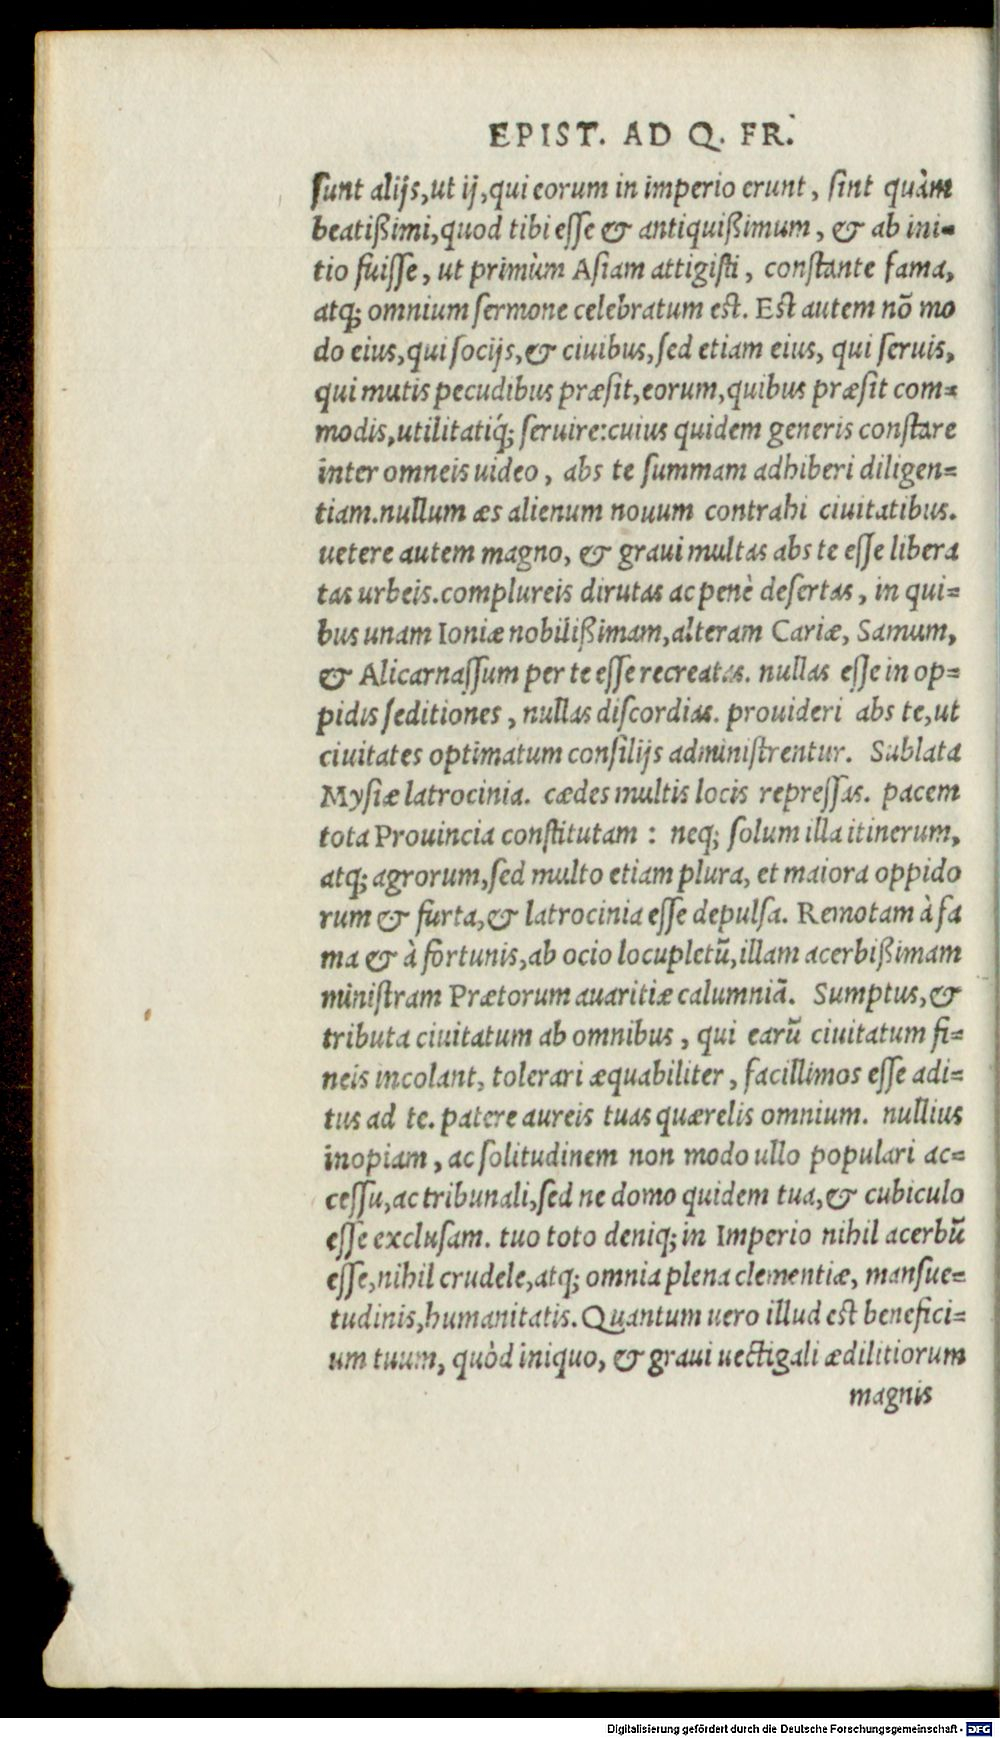 EPIST. AD Q. FR.
sunt alijs, ut ij, qui eorum in imperio erunt, sint quàm
beatißimi, quod tibi esse & antiquißimum, & ab ini-
tio fuisse, ut primùm Asiam attigisti, constante fama,
atq; omnium sermone celebratum est. Est autem nō mo
do eius, qui socijs, & ciuibus, sed etiam eius, qui seruis,
qui mutis pecudibus præsit, eorum, quibus præsit com-
modis, utilitatiq́; seruire: cuius quidem generis constare
inter omneis uideo, abs te summam adhiberi diligen-
tiam. nullum æs alienum nouum contrahi ciuitatibus.
uetere autem magno, & graui multas abs te esse libera
tas urbeis. complureis dirutas ac penè desertas, in qui-
bus unam Ioniæ nobilißimam, alteram Cariæ, Samum,
& Alicarnassum per te esse recreatas. nullas esse in op-
pidis seditiones, nullas discordias. prouideri abs te, ut
ciuitates optimatum consilijs administrentur. Sublata
Mysiæ latrocinia. cædes multis locis repressas. pacem
tota Prouincia constitutam : neq; solum illa itinerum,
atq; agrorum, sed multo etiam plura, et maiora oppido
rum & furta, & latrocinia esse depulsa. Remotam à fa
ma & à fortunis, ab ocio locupletū, illam acerbißimam
ministram Prætorum auaritiæ calumniā. Sumptus, &
tributa ciuitatum ab omnibus, qui earū ciuitatum fi-
neis incolant, tolerari æquabiliter, facillimos esse adi-
tus ad te. patere aureis tuas quærelis omnium. nullius
inopiam, ac solitudinem non modo ullo populari ac-
cessu, ac tribunali, sed ne domo quidem tua, & cubiculo
esse exclusam. tuo toto deniq; in Imperio nihil acerbū
esse, nihil crudele, atq; omnia plena clementiæ, mansue-
tudinis, humanitatis. Quantum uero illud est benefici-
um tuum, quòd iniquo, & graui uectigali ædilitiorum
magnis
Digitalisierung gefördert durch die Deutsche Forschungsgemeinschaft - DFG